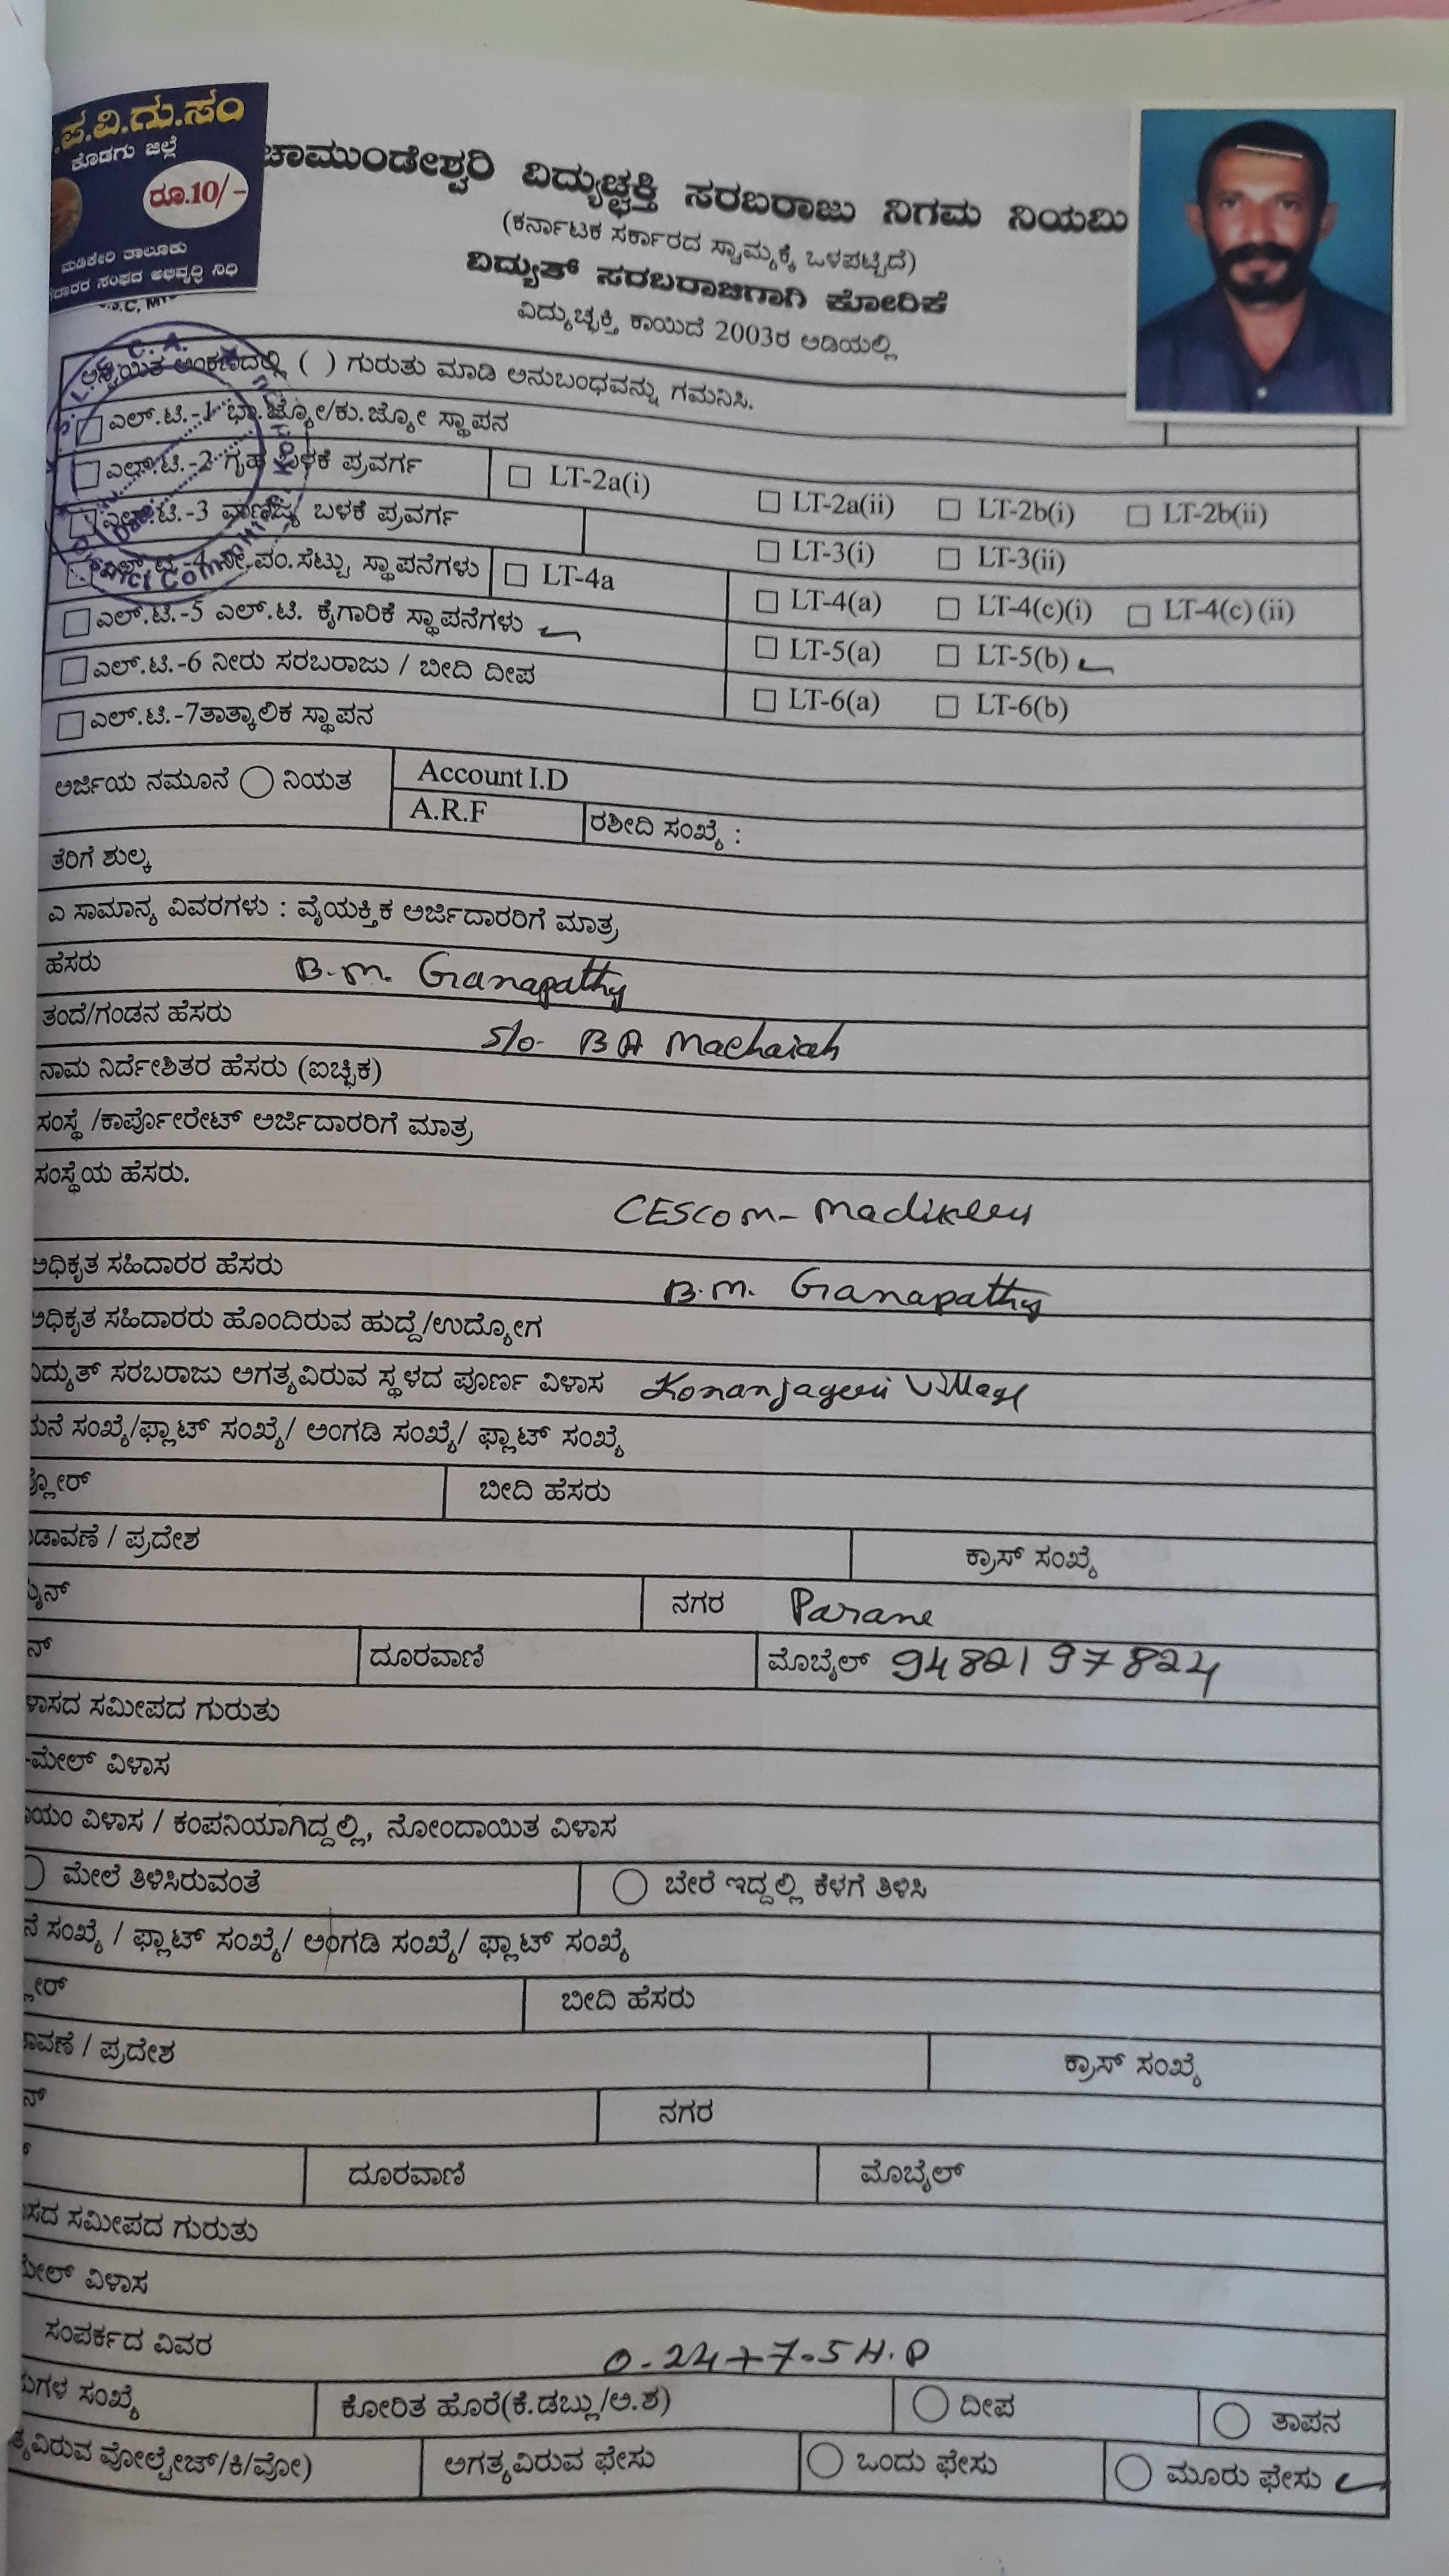 .ಪ.ವಿ.ಗು.ಸಂ
ಕೊಡಗು ಜಿಲ್ಲೆ
ರೂ.10/-
ಮಡಿಕೇರಿ ತಾಲೂಕು
ಸಂಘದ ಅಭಿವೃದ್ಧಿ ನಿಧಿ
ಚಾಮುಂಡೇಶ್ವರಿ ವಿದ್ಯುಚ್ಛಕ್ತಿ ಸರಬರಾಜು ನಿಗಮ ನಿಯಮಿ
(ಕರ್ನಾಟಕ ಸರ್ಕಾರದ ಸ್ವಾಮ್ಯಕ್ಕೆ ಒಳಪಟ್ಟಿದೆ)
ವಿದ್ಯುತ್ ಸರಬರಾಜಿಗಾಗಿ ಕೋರಿಕೆ
ವಿದ್ಯುಚ್ಛಕ್ತಿ ಕಾಯಿದೆ 2003ರ ಅಡಿಯಲ್ಲಿ
ಅನ್ವಯಿತ ಅಂಕಣದಲ್ಲಿ ( ) ಗುರುತು ಮಾಡಿ ಅನುಬಂಧವನ್ನು ಗಮನಿಸಿ.
ಎಲ್.ಟಿ.-1 ಭಾ.ಜ್ಯೋ/ಕು.ಜ್ಯೋ ಸ್ಥಾಪನ
ಎಲ್.ಟಿ.-2 ಗೃಹ ಬಳಕೆ ಪ್ರವರ್ಗ LT-2a(i) LT-2a(ii) LT-2b(i) LT-2b(ii)
ಎಲ್.ಟಿ.-3 ವಾಣಿಜ್ಯ ಬಳಕೆ ಪ್ರವರ್ಗ LT-3(i) LT-3(ii)
ಎಲ್.ಟಿ.-4 ನೀ.ಪಂ.ಸೆಟ್ಟು ಸ್ಥಾಪನೆಗಳು LT-4a LT-4(a) LT-4(c)(i) LT-4(c)(ii)
ಎಲ್.ಟಿ.-5 ಎಲ್.ಟಿ. ಕೈಗಾರಿಕೆ ಸ್ಥಾಪನೆಗಳು LT-5(a) LT-5(b)
ಎಲ್.ಟಿ.-6 ನೀರು ಸರಬರಾಜು / ಬೀದಿ ದೀಪ LT-6(a) LT-6(b)
ಎಲ್.ಟಿ.-7ತಾತ್ಕಾಲಿಕ ಸ್ಥಾಪನ
ಅರ್ಜಿಯ ನಮೂನೆ ನಿಯತ Account I.D
A.R.F ರಶೀದಿ ಸಂಖ್ಯೆ :
ತೆರಿಗೆ ಶುಲ್ಕ
ಎ ಸಾಮಾನ್ಯ ವಿವರಗಳು : ವೈಯಕ್ತಿಕ ಅರ್ಜಿದಾರರಿಗೆ ಮಾತ್ರ
ಹೆಸರು B.M. Ganapathy
ತಂದೆ/ಗಂಡನ ಹೆಸರು S/o- BA Machaiah
ನಾಮ ನಿರ್ದೇಶಿತರ ಹೆಸರು (ಐಚ್ಛಿಕ)
ಸಂಸ್ಥೆ /ಕಾರ್ಪೋರೇಟ್ ಅರ್ಜಿದಾರರಿಗೆ ಮಾತ್ರ
ಸಂಸ್ಥೆಯ ಹೆಸರು.
CESCOM- Madikeri
ಅಧಿಕೃತ ಸಹಿದಾರರ ಹೆಸರು B.M. Ganapathy
ಅಧಿಕೃತ ಸಹಿದಾರರು ಹೊಂದಿರುವ ಹುದ್ದೆ/ಉದ್ಯೋಗ
ವಿದ್ಯುತ್ ಸರಬರಾಜು ಅಗತ್ಯವಿರುವ ಸ್ಥಳದ ಪೂರ್ಣ ವಿಳಾಸ Konanjageri Village
ಮನೆ ಸಂಖ್ಯೆ/ಫ್ಲಾಟ್ ಸಂಖ್ಯೆ/ ಅಂಗಡಿ ಸಂಖ್ಯೆ/ ಫ್ಲಾಟ್ ಸಂಖ್ಯೆ
ಫ್ಲೋರ್ ಬೀದಿ ಹೆಸರು
ಡಾವಣೆ / ಪ್ರದೇಶ ಕ್ರಾಸ್ ಸಂಖ್ಯೆ
ನಗರ Parane
ದೂರವಾಣಿ ಮೊಬೈಲ್ 9482197824
ಳಾಸದ ಸಮೀಪದ ಗುರುತು
-ಮೇಲ್ ವಿಳಾಸ
ಾಯಂ ವಿಳಾಸ / ಕಂಪನಿಯಾಗಿದ್ದಲ್ಲಿ, ನೋಂದಾಯಿತ ವಿಳಾಸ
ಮೇಲೆ ತಿಳಿಸಿರುವಂತೆ ಬೇರೆ ಇದ್ದಲ್ಲಿ ಕೆಳಗೆ ತಿಳಿಸಿ
ನೆ ಸಂಖ್ಯೆ / ಫ್ಲಾಟ್ ಸಂಖ್ಯೆ/ ಅಂಗಡಿ ಸಂಖ್ಯೆ/ ಫ್ಲಾಟ್ ಸಂಖ್ಯೆ
ಬೀದಿ ಹೆಸರು
ಾವಣೆ / ಪ್ರದೇಶ ಕ್ರಾಸ್ ಸಂಖ್ಯೆ
ನಗರ
ದೂರವಾಣಿ ಮೊಬೈಲ್
ಸದ ಸಮೀಪದ ಗುರುತು
ಮೇಲ್ ವಿಳಾಸ
ಸಂಪರ್ಕದ ವಿವರ 0-24+7-5 H.P
ುಗಳ ಸಂಖ್ಯೆ ಕೋರಿತ ಹೊರೆ(ಕೆ.ಡಬ್ಲು/ಅ.ಶ) ದೀಪ ತಾಪನ
ತ್ಯವಿರುವ ವೋಲ್ಟೇಜ್/ಕಿ/ವೋ) ಅಗತ್ಯವಿರುವ ಫೇಸು ಒಂದು ಫೇಸು ಮೂರು ಫೇಸು